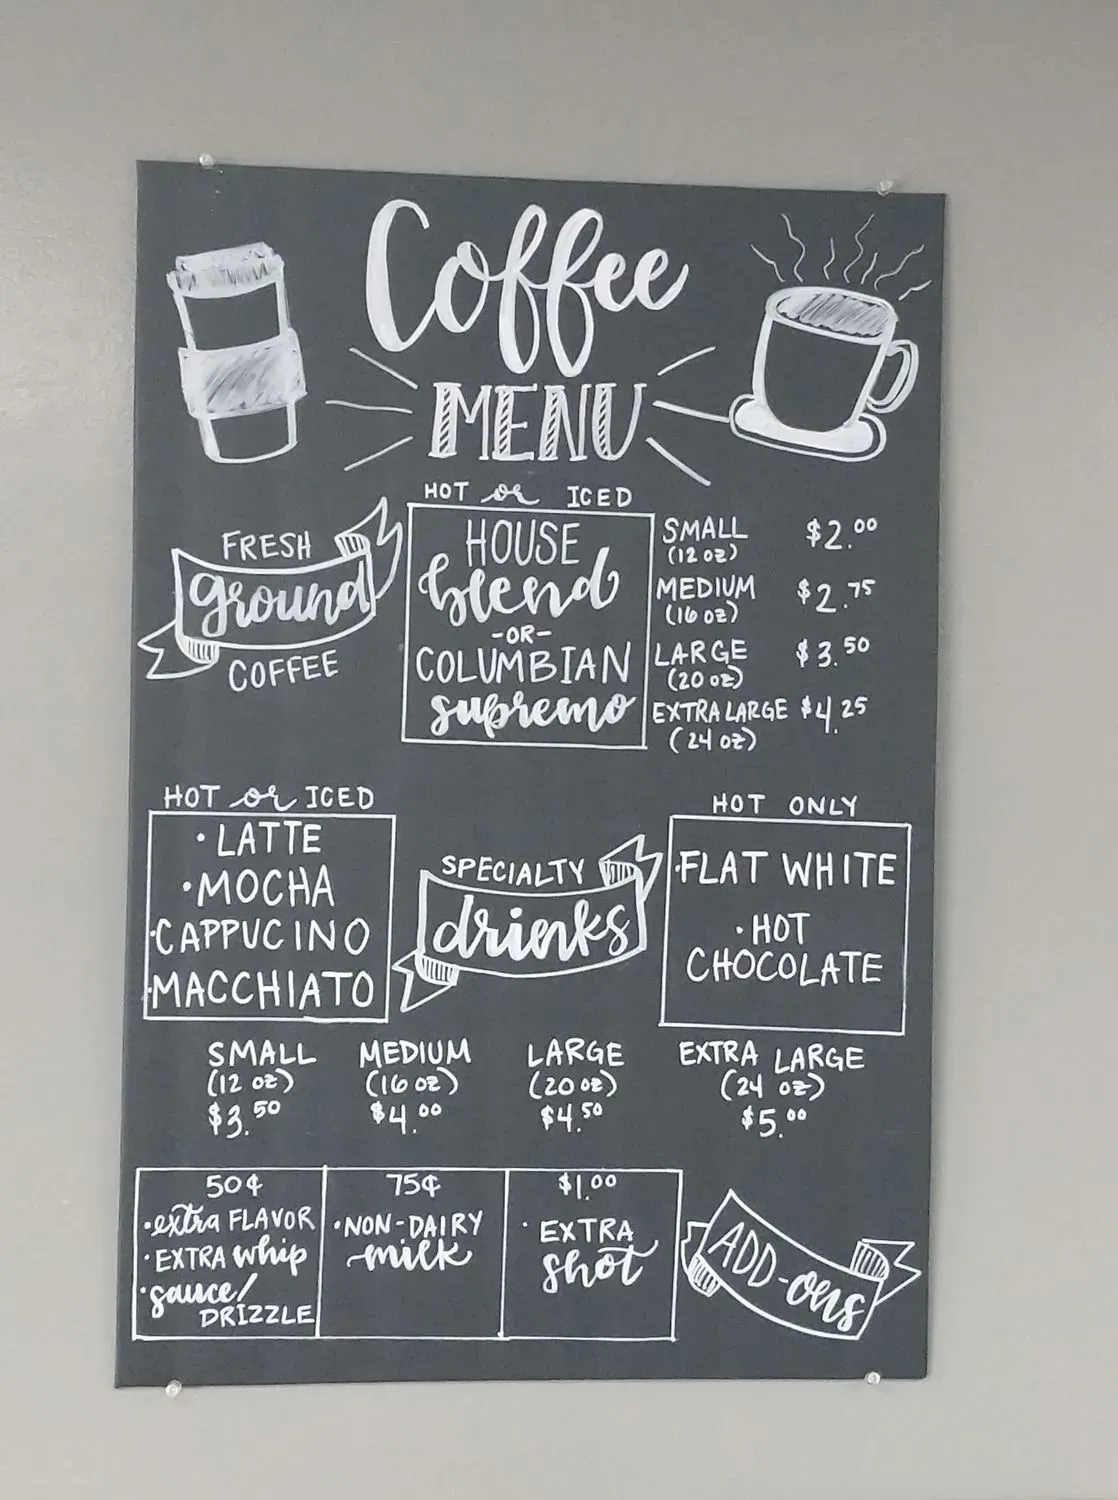 Coffee
MENU
FRESH
ground
COFFEE
HOT or ICED
HOUSE
blend
-OR-
COLUMBIAN
supremo
SMALL $2.00
(12 oz)
MEDIUM $2.75
(16 oz)
LARGE $3.50
(20 oz)
EXTRA LARGE $4.25
(24 oz)
HOT or ICED
• LATTE
• MOCHA
• CAPPUCINO
• MACCHIATO
SPECIALTY
drinks
HOT ONLY
• FLAT WHITE
• HOT
CHOCOLATE
SMALL
(12 oz)
$3.50
MEDIUM
(16 oz)
$4.00
LARGE
(20 oz)
$4.50
EXTRA LARGE
(24 oz)
$5.00
50¢
• extra FLAVOR
• EXTRA whip
• sauce/
DRIZZLE
75¢
• NON-DAIRY
milk
$1.00
• EXTRA
shot
ADD-ons